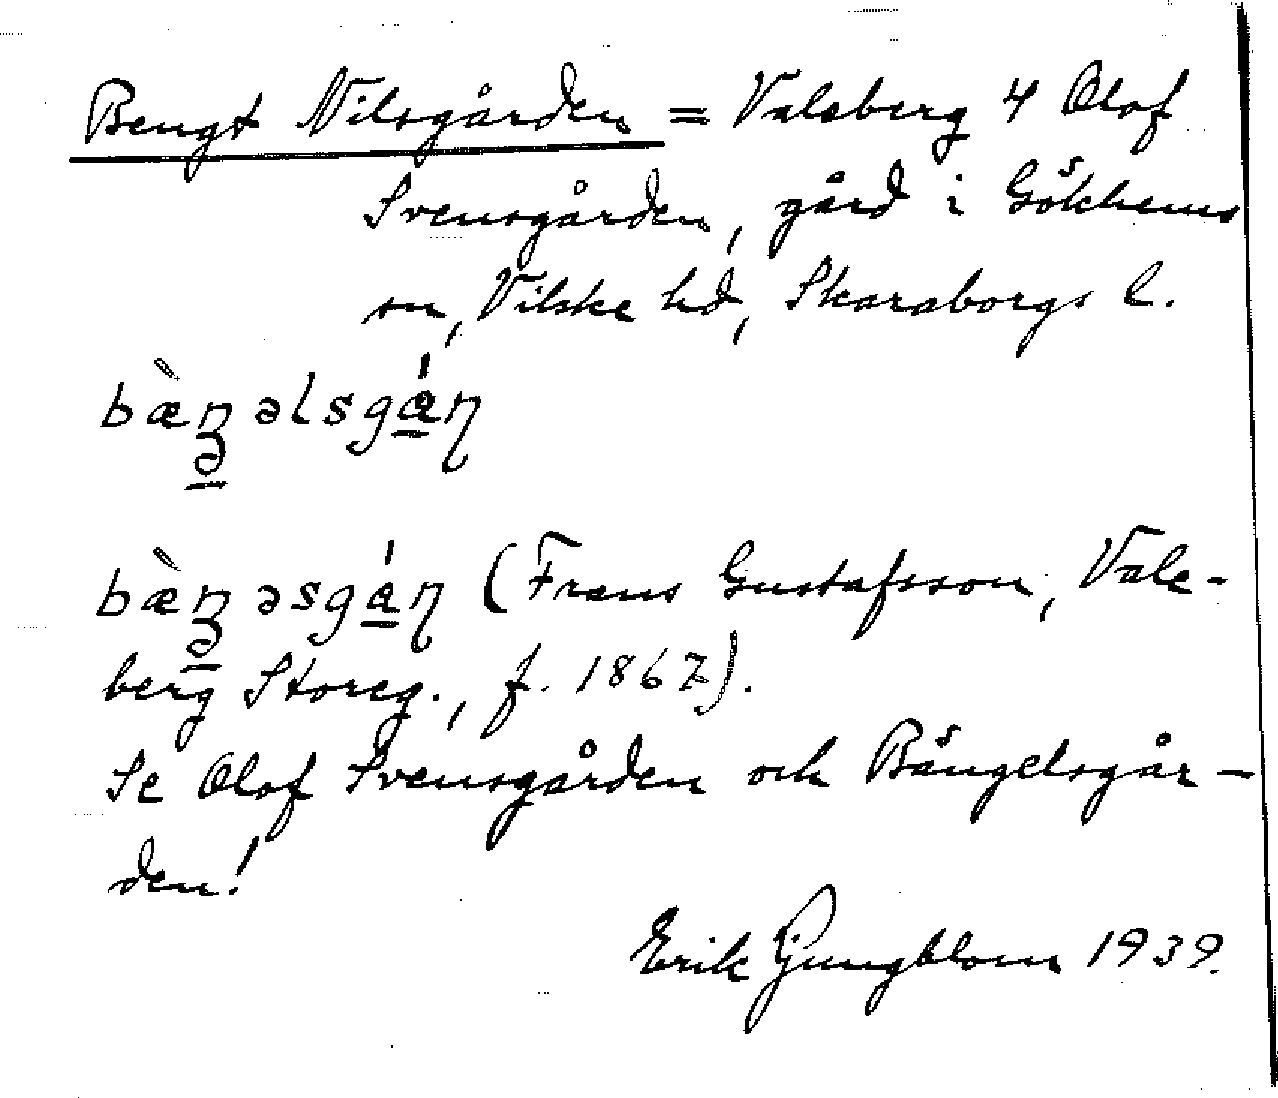 Bengt Nilsgården = Valeberg 4 Olof
Svensgården, gård i Gökhems
sn, Vilske hd, Skaraborgs l.
bæ̀n̠əlsgán
bæ̀n̠əsgán (Frans Gustafsson, Vale-
berg Storeg., f. 1867).
Se Olof Svensgården och Bängelsgår-
den!
Erik Ljungblom 1939.